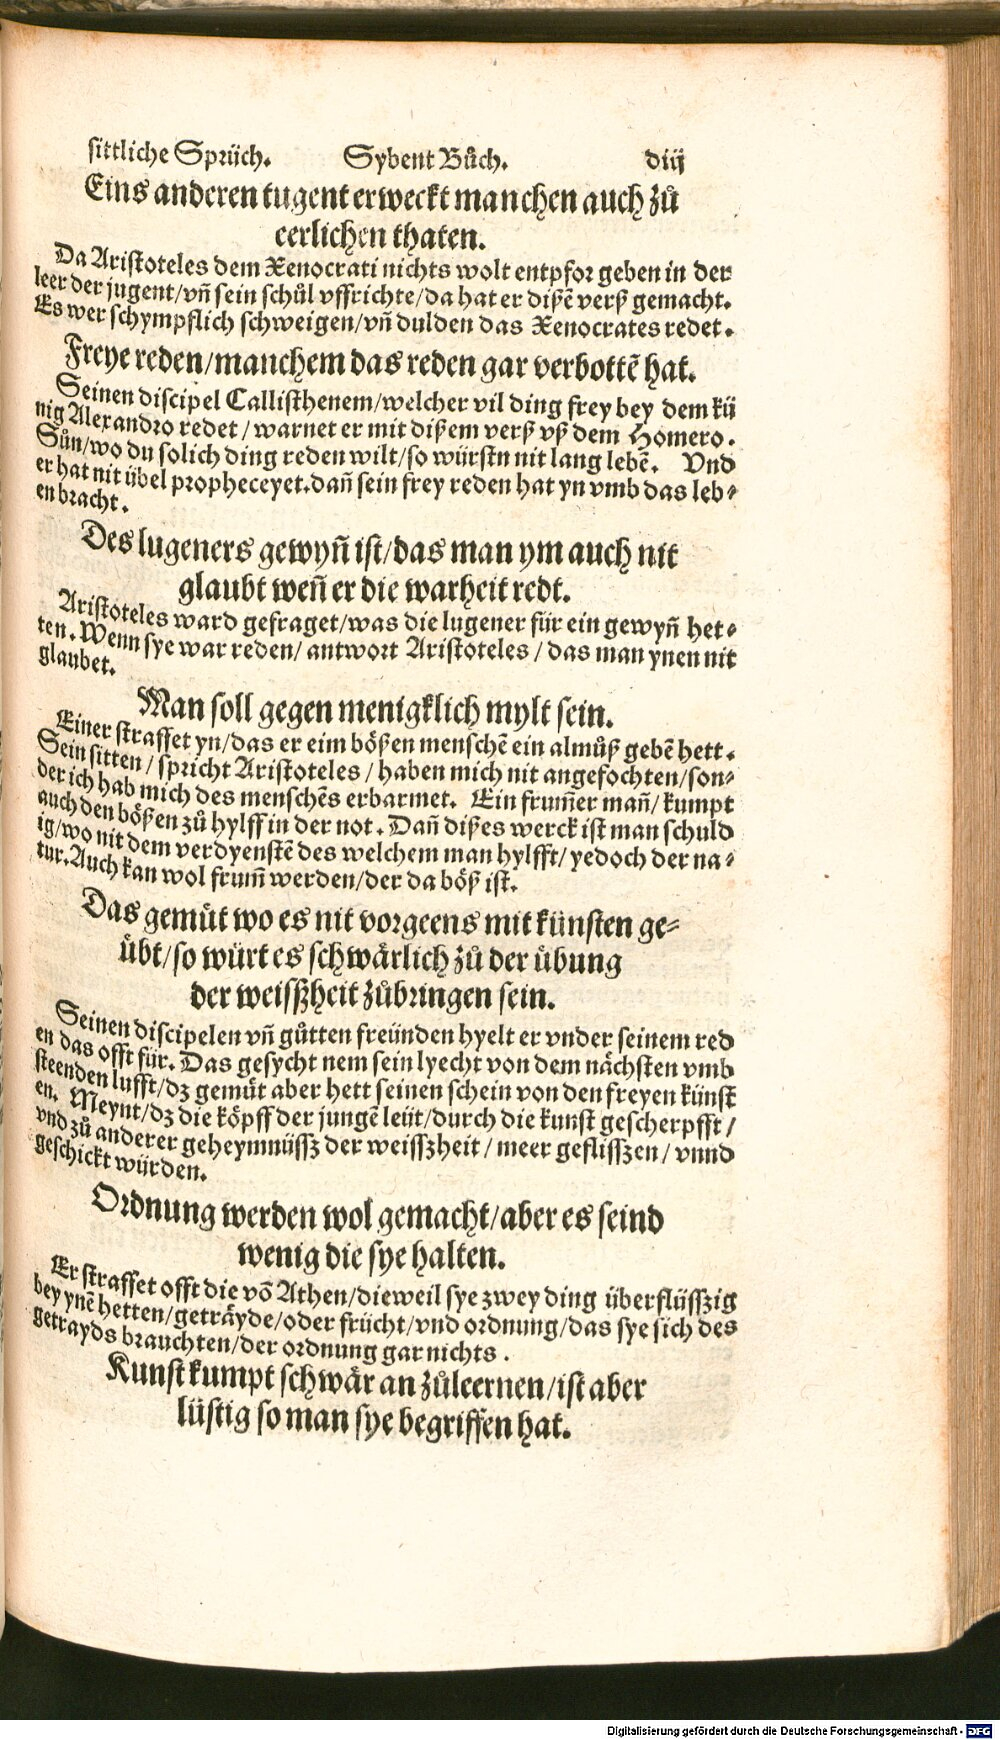 sittliche Sprüch. Sybent Bůch. diij
Eins anderen tugent erweckt manchen auch zů
eerlichen thaten.
Da Aristoteles dem Xenocrati nichts wolt entpfor geben in der
leer der jugent/vñ sein schůl vffrichte/da hat er dißẽ verß gemacht.
Es wer schympflich schweigen/vñ dulden das Xenocrates redet.
Freye reden/manchem das reden gar verbottẽ hat.
Seinen discipel Callisthenem/welcher vil ding frey bey dem kü
nig Alexandro redet/warnet er mit dißem verß vß dem Homero.
Sůn/wo du solich ding reden wilt/so würstn nit lang lebẽ. Vnd
er hat nit übel propheceyet.dañ sein frey reden hat yn vmb das leb⸗
en bracht.
Des lugeners gewyñ ist/das man ym auch nit
glaubt weñ er die warheit redt.
Aristoteles ward gefraget/was die lugener für ein gewyñ het⸗
ten. Wenn sye war reden/antwort Aristoteles/das man ynen nit
glaubet.
Man soll gegen menigklich mylt sein.
Einer straffet yn/das er eim bößen menschẽ ein almůß gebẽ hett.
Sein sitten/spricht Aristoteles/haben mich nit angefochten/son⸗
der ich hab mich des menschẽs erbarmet. Ein frum̃er mañ/kumpt
auch den bößen zů hylff in der not. Dañ dißes werck ist man schuld
ig/wo nit dem verdyenstẽ des welchem man hylfft/yedoch der na⸗
tur.Auch kan wol frum̃ werden/der da böß ist.
Das gemüt wo es nit vorgeens mit künsten ge⸗
übt/so würt es schwärlich zů der übung
der weißheit zůbringen sein.
Seinen discipelen vñ gůtten freünden hyelt er vnder seinem red
en das offt für. Das gesycht nem sein lyecht von dem nächsten vmb
steenden lufft/dz gemüt aber hett seinen schein von den freyen künst
en. Meynt/dz die köpff der jungẽ leüt/durch die kunst gescherpfft/
vnd zů anderer geheymnüssz der weisszheit/meer geflisszen/vnnd
geschickt würden.
Ordnung werden wol gemacht/aber es seind
wenig die sye halten.
Er straffet offt die võ Athen/dieweil sye zwey ding überflüsszig
bey ynẽ hetten/geträyde/oder frücht/vnd ordnung/das sye sich des
getrayds brauchten/der ordnung gar nichts.
Kunst kumpt schwär an zůleernen/ist aber
lüstig so man sye begriffen hat.
Digitalisierung gefördert durch die Deutsche Forschungsgemeinschaft - DFG